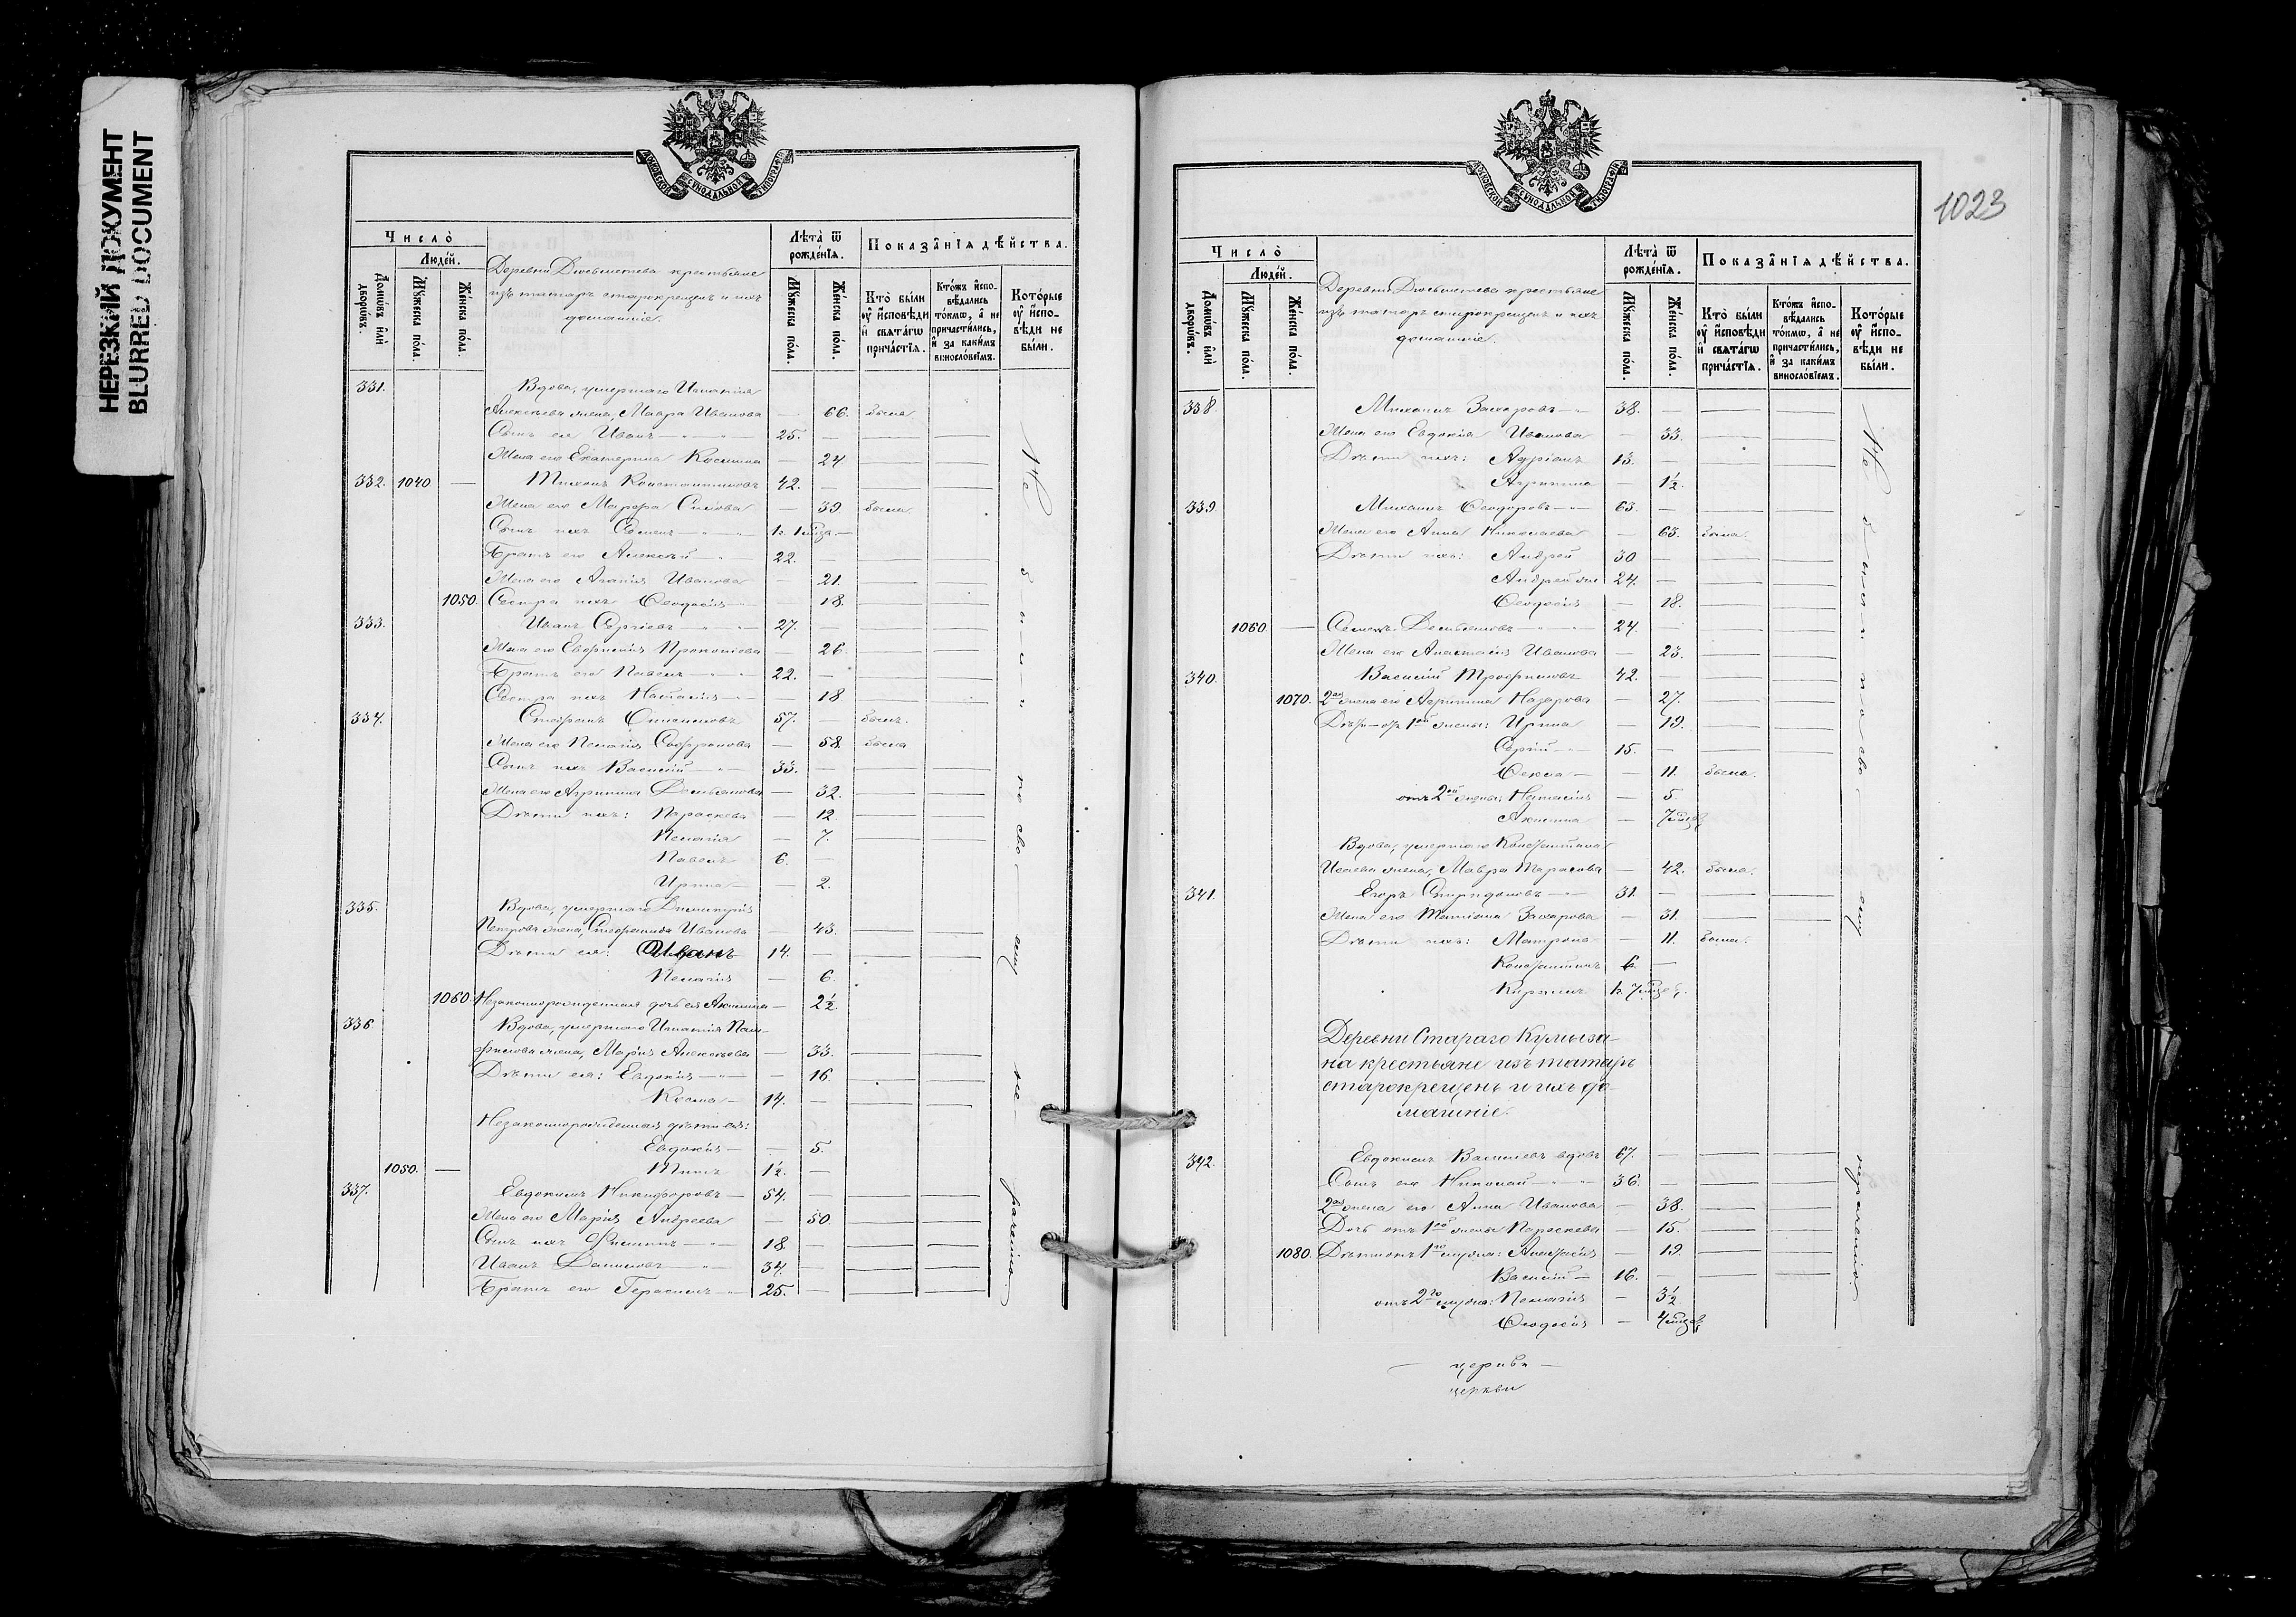 НЕРЕЗКИЙ ДОКУМЕНТ
BLURRED DOCUMENT
МОСКОВСКОЙ СѴНОДАЛЬНОЙ ТИПОГРАФІИ
Число̀
Людéй.
Домѡ́въ и҆лѝ дворѡ́въ.
Мꙋ́жеска по́ла.
Же́нска по́ла.
Деревни крестьяне
изъ татаръ старокрещенъ и ихъ
домашніе.
Лѣ́та ѿ рожде́нїѧ.
Мꙋ́жеска по́ла.
Же́нска по́ла.
Показа̂нїѧ дѣ́йства.
Кто̀ бы́ли оу҆ и҆сповѣ́ди и҆ свѧта́гѡ прича́стїѧ.
Кто́жъ и҆спо-вѣ́дались то́кмѡ, а҆ не причасти́лись, и҆ за каки́мъ винослóвїемъ.
Кото́рые оу҆ и҆спо-вѣ́ди не бы́ли.
331. Вдова, умершаго Игнатія
Алексѣева жена, Мавра Иванова — 66. была
Сынъ ея Иванъ 25. —
Жена его Екатерина Космина — 24.
332. 1040 — Тихонъ Константиновъ 42. —
Жена его Марфа — 39 была
Сынъ ихъ Семенъ
Братъ его Алексѣй 22.
Жена его Агапія Иванова — 21.
1050. Сестра ихъ Ѳеодосія — 18.
333. Иванъ Сергіевъ 27. —
Жена его Евфимія Прокопіева — 26.
Братъ его Павелъ 22. —
Сестра ихъ Наталія — 18.
334. Стефанъ Онисимовъ 57. — былъ.
Жена его Пелагія Софронова — 58. была
Сынъ ихъ Василій 33. —
Жена его Агрипина Демьянова — 32.
Дѣти ихъ: Параскева — 12
Пелагія — 7.
Павелъ 6. —
Ирина — 2.
335. Вдова, умершаго Димитрія
Петрова жена, Стефанида Иванова — 43.
Дѣти ея: Иванъ 14. —
Пелагія — 6.
1060 Незаконнорожденная дочь ея Акилина — 2½
336 Вдова, умершаго Игнатія Пам-
филова жена, Марія Алексѣева — 33.
Дѣти ея: Евдокія — 16.
Косма 14. —
Незаконнорожденныя дѣти ея:
Евдокія — 5.
1050. — Титъ 1½. —
337. Евдокимъ Никифоровъ 54. —
Жена его Марія Андреева — 50.
Сынъ ихъ Филиппъ 18. —
Иванъ Даниловъ 34. —
Братъ его Герасимъ 25. —
Не были по своему не раченію.
1023
МОСКОВСКОЙ СѴНОДАЛЬНОЙ ТИПОГРАФІИ
Число̀
Людéй.
Домѡ́въ и҆лѝ дворѡ́въ.
Мꙋ́жеска по́ла.
Же́нска по́ла.
Деревни крестьяне
изъ татаръ старокрещенъ и ихъ
домашніе.
Лѣ́та ѿ рожде́нїѧ.
Мꙋ́жеска по́ла.
Же́нска по́ла.
Показа̂нїѧ дѣ́йства.
Кто̀ бы́ли оу҆ и҆сповѣ́ди и҆ свѧта́гѡ прича́стїѧ.
Кто́жъ и҆спо-вѣ́дались то́кмѡ, а҆ не причасти́лись, и҆ за каки́мъ винослóвїемъ.
Кото́рые оу҆ и҆спо-вѣ́ди не бы́ли.
338. Михаилъ Захаровъ 38. —
Жена его Евдокія Иванова — 33.
Дѣти ихъ: Адріанъ 13. —
Агрипина — 1½.
339. Михаилъ Ѳеодоровъ 63. —
Жена его Анна Николаева — 63. была.
Дѣти ихъ: Андрей 30 —
Андрей 24. —
Ѳеодосія — 18.
1060 — Семенъ Демьяновъ 24. —
Жена его Анастасія Иванова — 23.
340. Василій Трофимовъ 42. —
1070. 2ая жена его Агрипина Назарова — 27.
Дѣти отъ 1ой жены: Ирина — 19.
Сергій 15. —
Ѳекла — 11. была.
отъ 2ой жены: Наталія — 5.
Акилина — 7 мѣсяц.
Вдова, умершаго Константина
Исаева жена, Мавра Тарасова — 42. была.
341. Егоръ Спиридоновъ 31. —
Жена его Татіана Захарова — 31.
Дѣти ихъ: Матрона — 11. была.
Константинъ 6. —
Кириллъ
Деревни Стараго Кумыза-
на крестьяне изъ татаръ
старокрещенъ и ихъ до-
машніе.
342. Евдокимъ Васильевъ вдовъ 67. —
Сынъ его Николай 36. —
2ая жена его Анна Иванова — 38.
Дочь отъ 1ой жены Параскева — 15.
1080. Дѣти отъ 1го мужа: Анастасія — 19.
Василій 16. —
отъ 2го мужа: Пелагія — 3½
Ѳеодосія — 4 мѣсяц.
Не были по своему нераченію.
церкви
церкви